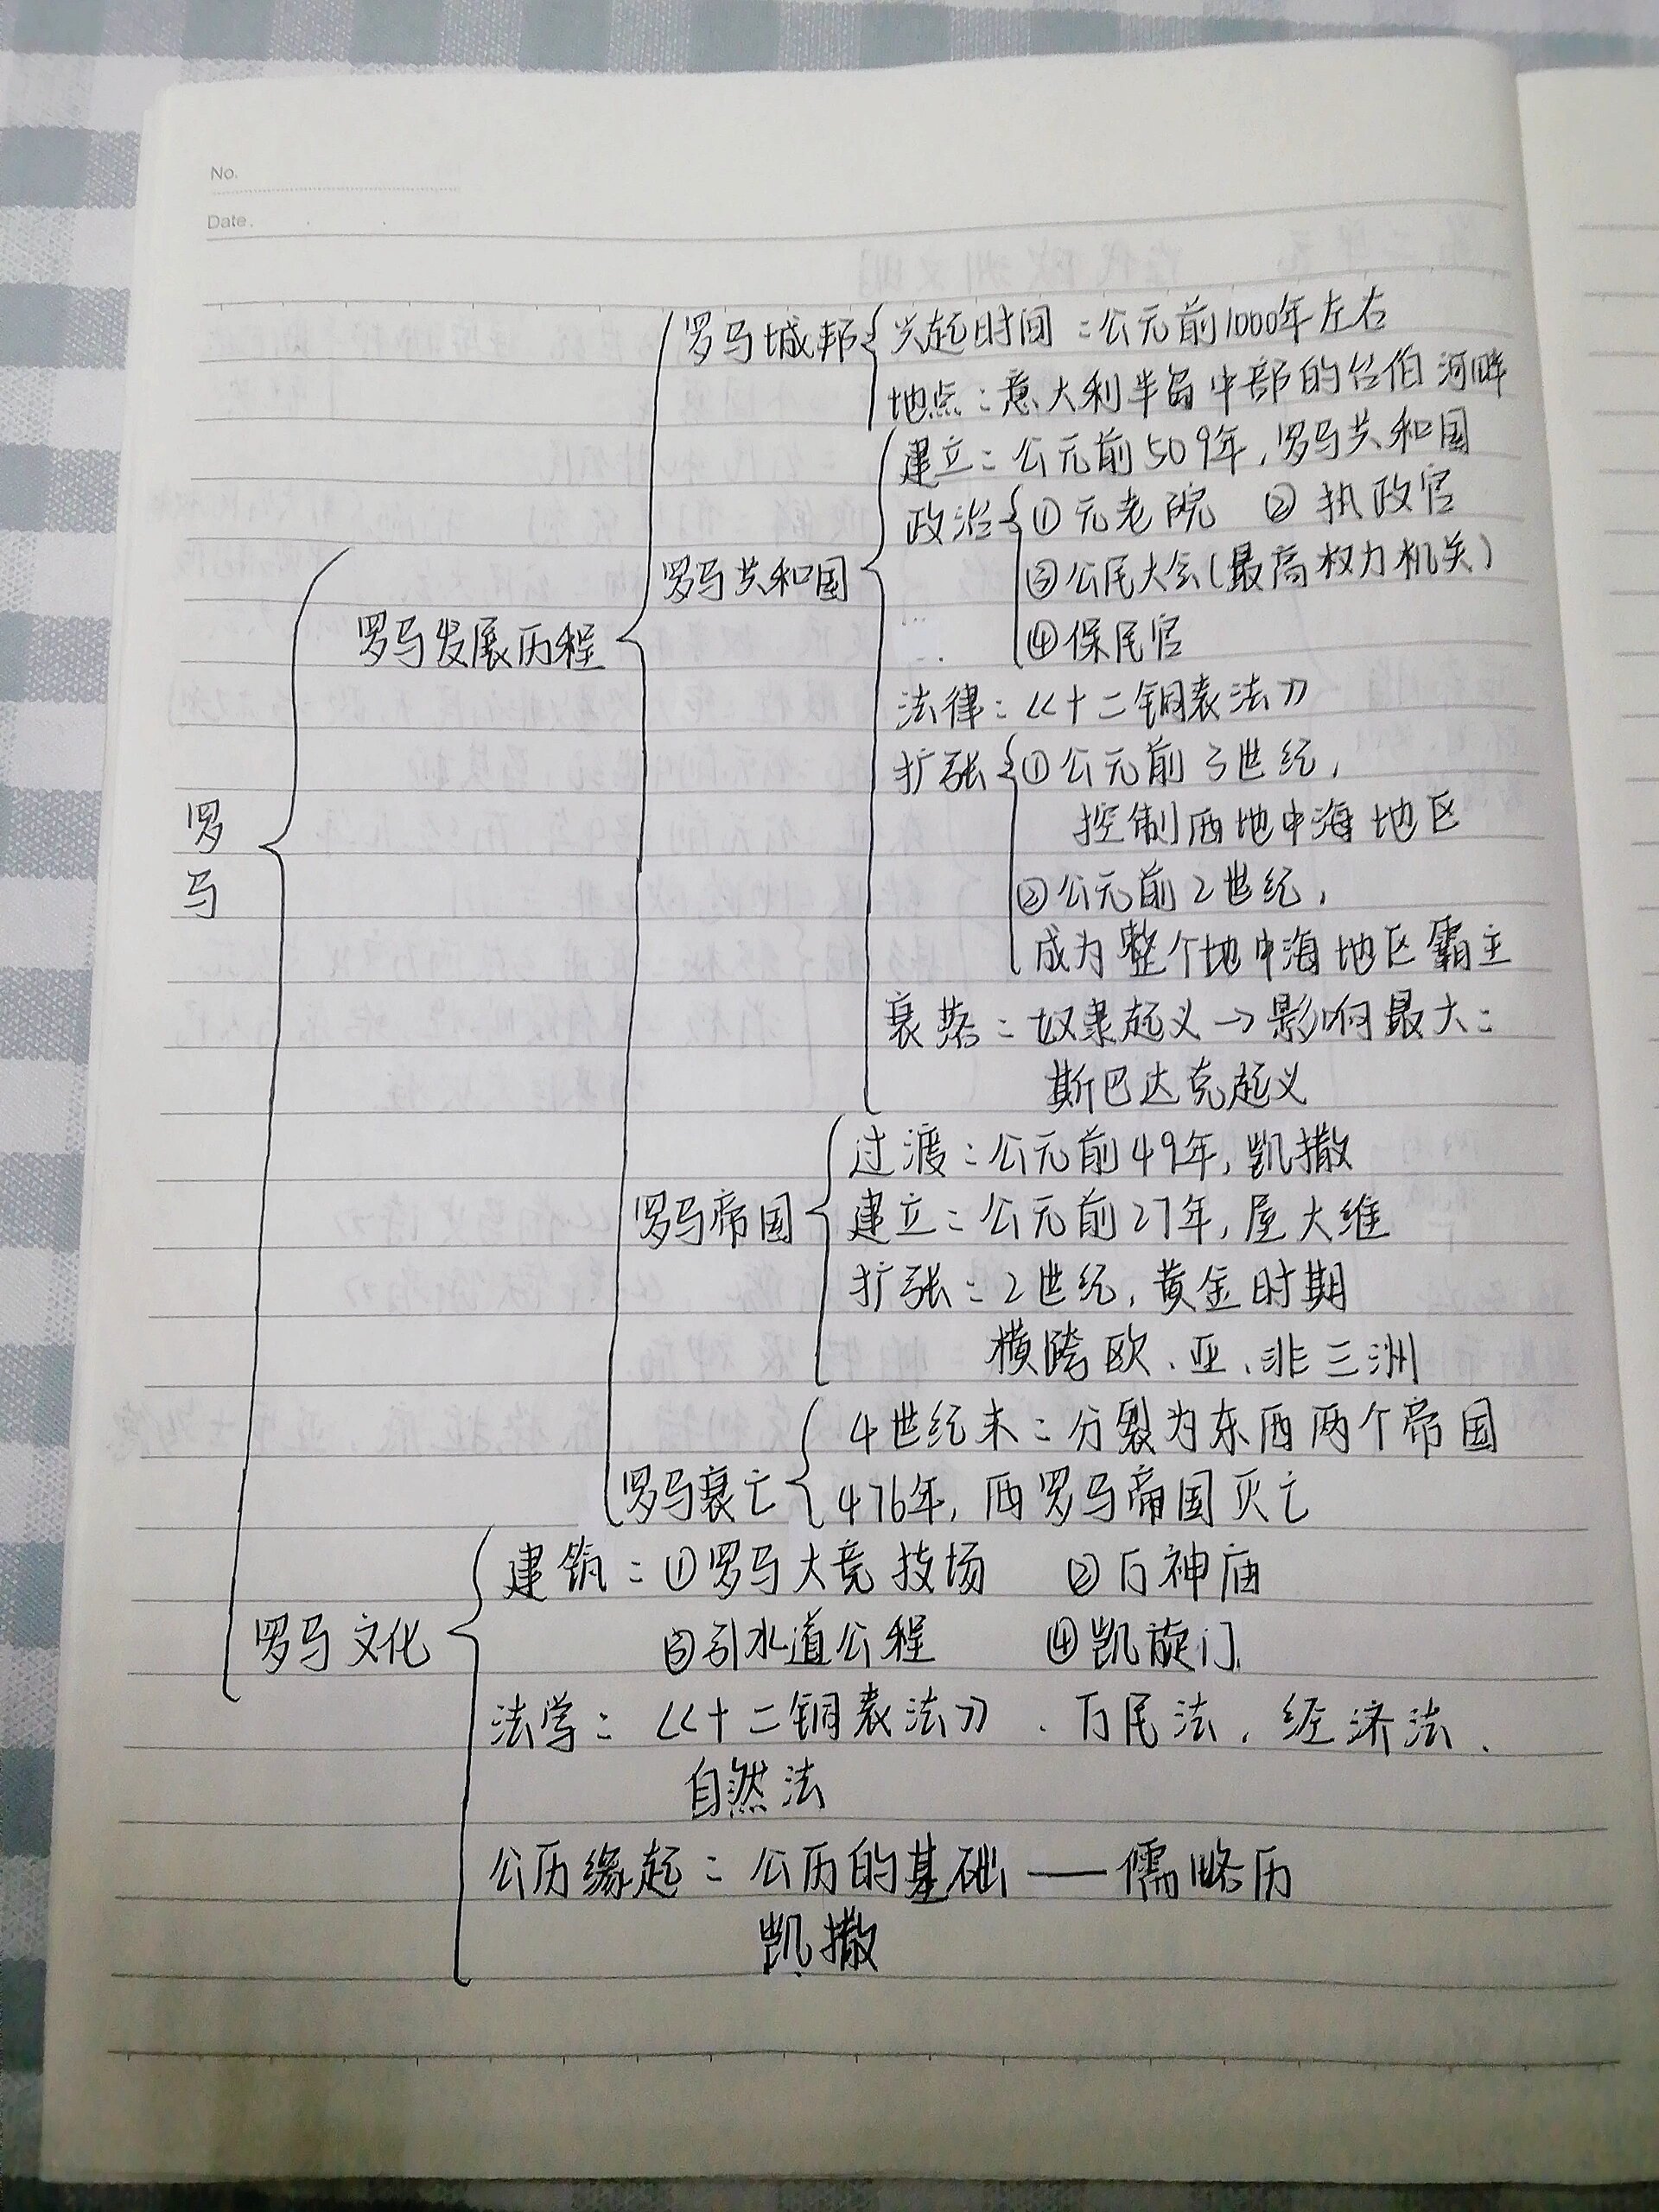 No.
Date.
罗马城邦 兴起时间：公元前1000年左右
地点：意大利半岛中部的台伯河畔
建立：公元前509年，罗马共和国
政治 ①元老院 ②执政官
罗马共和国 ③公民大会（最高权力机关）
罗马发展历程 ④保民官
法律：《十二铜表法》
扩张 ①公元前3世纪，
罗 控制西地中海地区
马 ②公元前2世纪，
成为整个地中海地区霸主
衰落：奴隶起义→影响最大：
斯巴达克起义
过渡：公元前49年，凯撒
罗马帝国 建立：公元前27年，屋大维
扩张：2世纪，黄金时期
横跨欧、亚、非三洲
4世纪末：分裂为东西两个帝国
罗马衰亡 476年，西罗马帝国灭亡
建筑：①罗马大竞技场 ②万神庙
罗马文化 ③引水道公程 ④凯旋门
法学：《十二铜表法》、万民法、经济法、
自然法
公历缘起：公历的基础——儒略历
凯撒